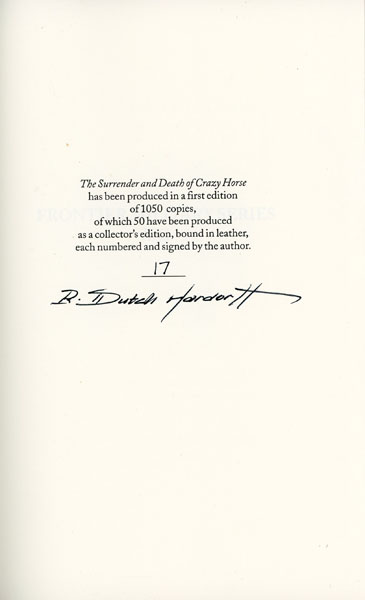 The Surrender and Death of Crazy Horse
has been produced in a first edition
of 1050 copies,
of which 50 have been produced
as a collector's edition, bound in leather,
each numbered and signed by the author.
17
R. Dutch Hardorff